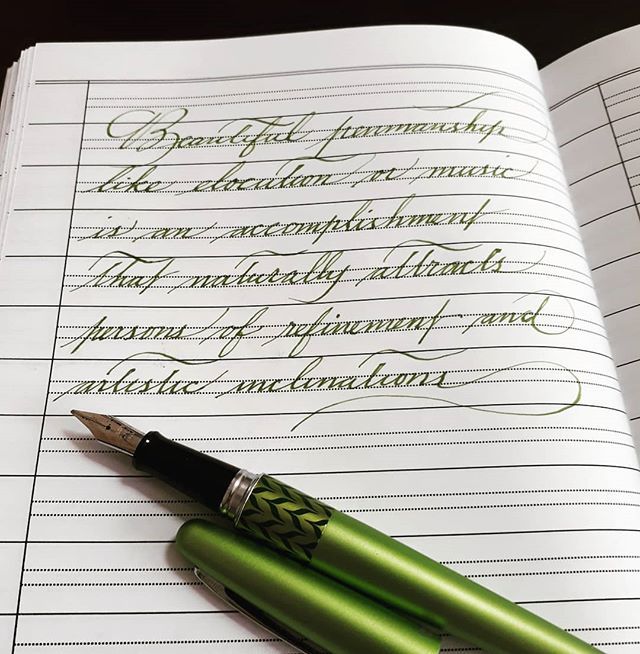 Beautiful penmanship
like elocution or music
is an accomplishment
that naturally attracts
persons of refinement and
artistic inclinations